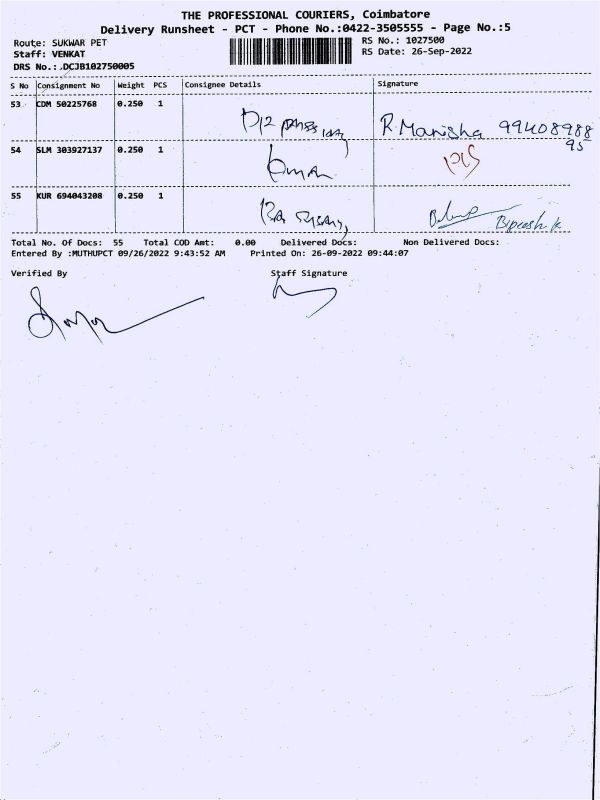 THE PROFESSIONAL COURIERS, Coimbatore
Delivery Runsheet - PCT - Phone No.:0422-3505555 - Page No.:5
Route: SUKWAR PET
Staff: VENKAT
DRS No.: .DCJB102750005
RS No.: 1027500
RS Date: 26-Sep-2022
S No Consignment No Weight PCS Consignee Details Signature
53 CDM 50225768 0.250 1
R Manisha 99408988
95
54 SLM 303927137 0.250 1
55 KUR 694043208 0.250 1
Bipeash k
Total No. Of Docs: 55 Total COD Amt: 0.00 Delivered Docs: Non Delivered Docs:
Entered By :MUTHUPCT 09/26/2022 9:43:52 AM Printed On: 26-09-2022 09:44:07
Verified By Staff Signature